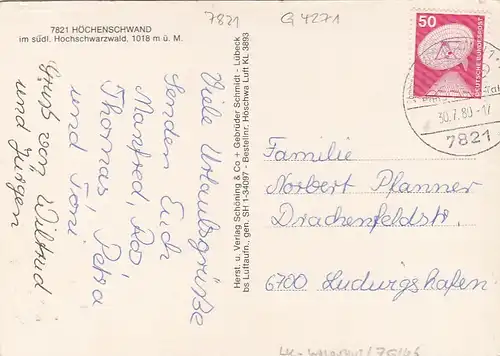 7821 HÖCHENSCHWAND
im südl. Hochschwarzwald, 1018 m ü. M.
7821
G 4271
Viele Urlaubsgrüße
Senden Euch
Manfred,
Thomas, Petra
und Toni
Gruß von Wiltrud
und Jürgen
Herst. u. Verlag Schöning & Co + Gebrüder Schmidt - Lübeck
bs Luftaufn., gen. SH 1-34097 - Bestellnr. Höschwa Luft KL 3893
50
DEUTSCHE BUNDESPOST
30.7.80-17
7821
Familie
Norbert Pfanner
Drachenfelsstr.
6700 Ludwigshafen